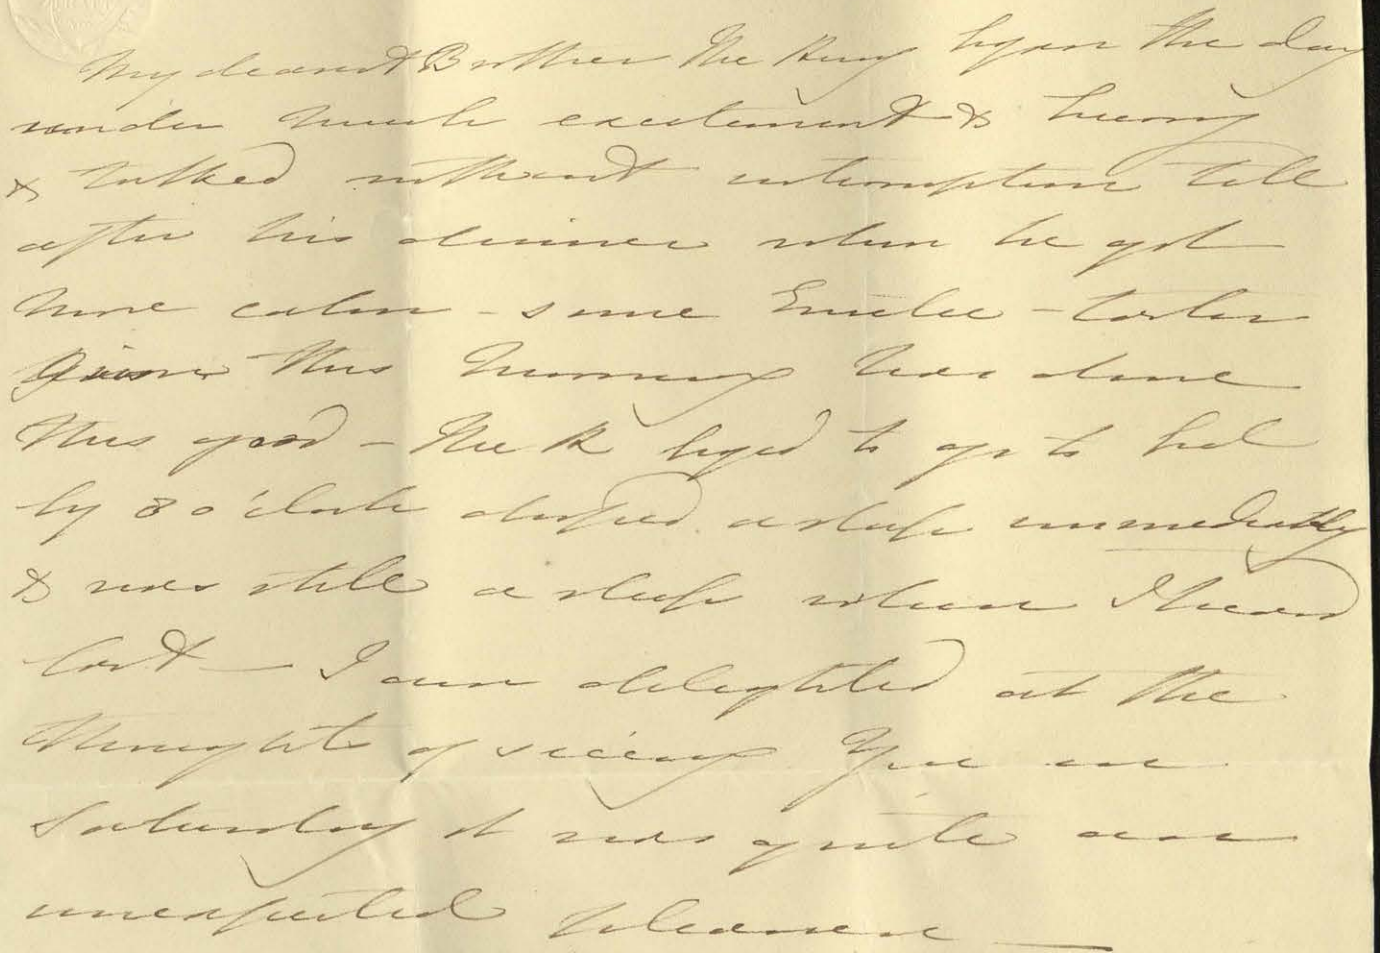 My dearest Brother The King began the day
under much excitement & hurry
& talked without interruption till
after his dinner when he got
more calm - some Emetic - tartar
given this morning has done
this good - The K beged to go to bed
by 8 o'clock droped a sleep immediately
& was still a sleep when I heard
last - I am delighted at the
thoughts of seeing You on
Saturday it was quite an
unexpected pleasure -